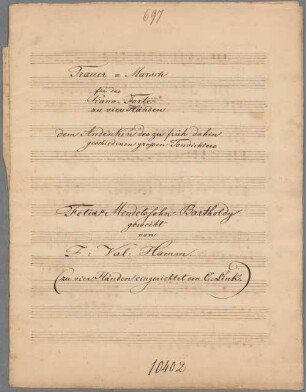 697
Trauer = Marsch
für das
Piano-Forte
zu vier Händen
dem Andenken des zu früh dahin
geschiedenen großen Tondichters
Felix Mendelssohn Bartholdy
geweiht
von
F. Val. Hamm
(zu vier Händen eingerichtet von C.
10402